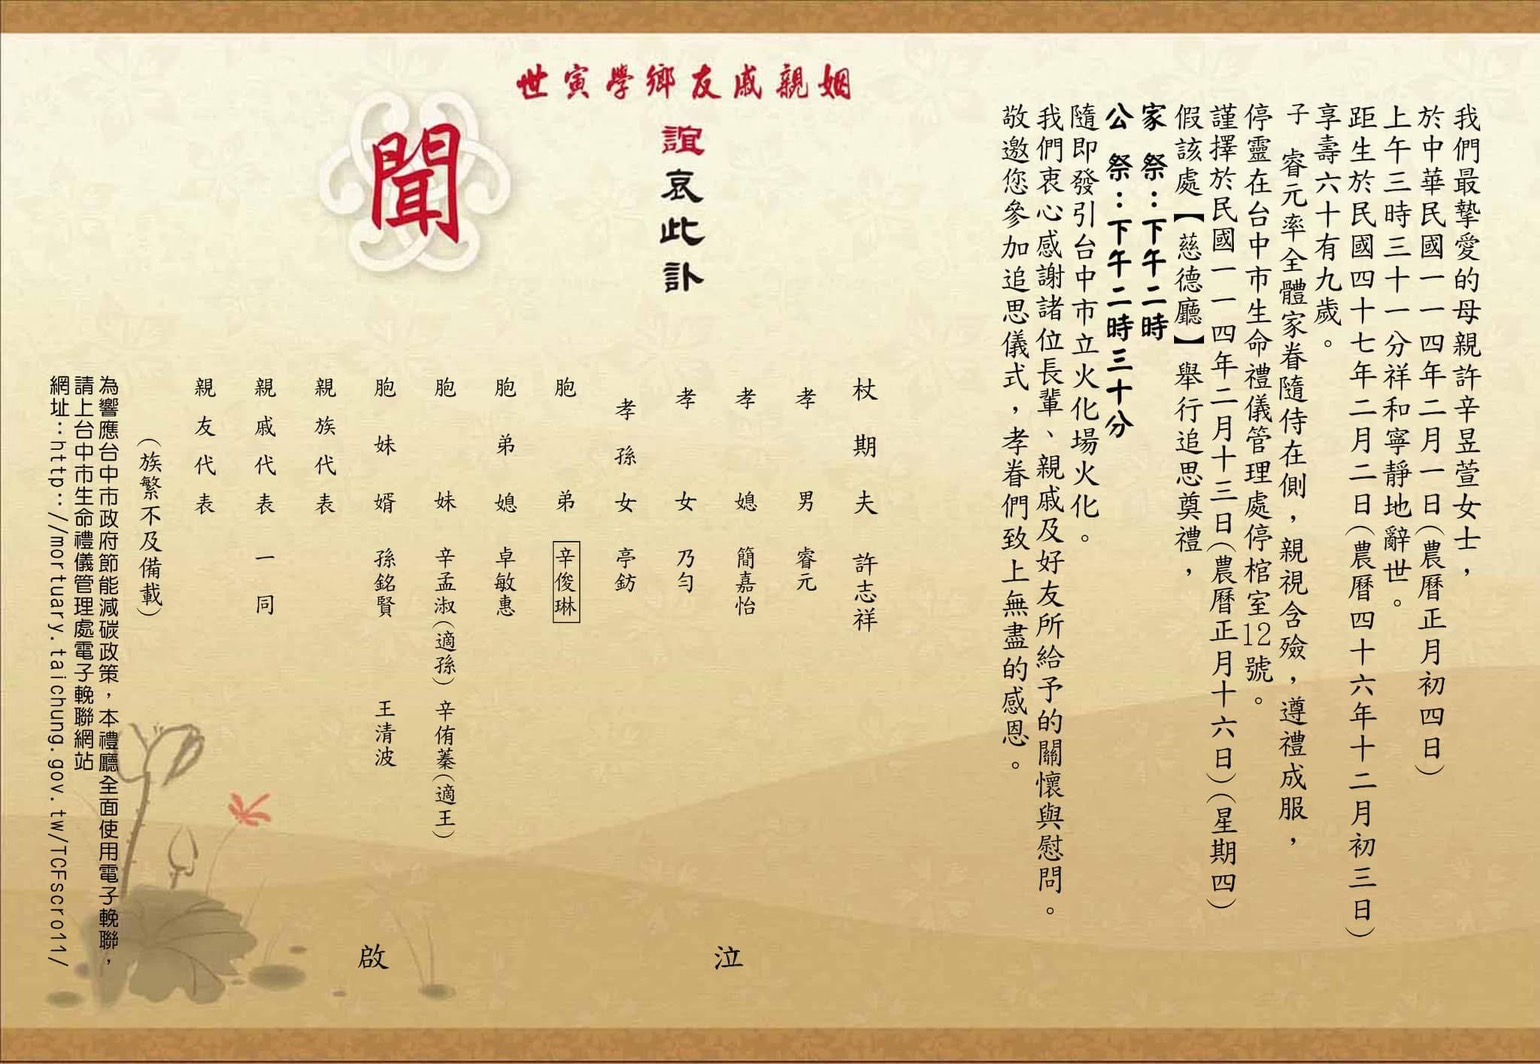 我們最摯愛的母親許辛昱萱女士，
於中華民國一一四年二月一日(農曆正月初四日)
上午三時三十一分祥和寧靜地辭世。
距生於民國四十七年二月二日(農曆四十六年十二月初三日)
享壽六十有九歲。
子　睿元率全體家眷隨侍在側，親視含殮，遵禮成服，
停靈在台中市生命禮儀管理處停棺室12號。
謹擇於民國一一四年二月十三日(農曆正月十六日)(星期四)
假該處【慈德廳】舉行追思奠禮，
家　祭：下午二時
公　祭：下午二時三十分
隨即發引台中市立火化場火化。
我們衷心感謝諸位長輩、親戚及好友所給予的關懷與慰問。
敬邀您參加追思儀式，孝眷們致上無盡的感恩。
姻親戚友鄉學寅世
誼哀此訃
聞
杖期夫　許志祥
孝　男　睿元
孝　媳　簡嘉怡
孝　女　乃勻
孝孫女　亭鈁
胞　弟　辛俊琳
胞弟媳　卓敏惠
胞　妹　辛孟淑(適孫)　辛侑蓁(適王)
胞妹婿　孫銘賢　王清波
親族代表
親戚代表　一同
親友代表
泣
啟
(族繁不及備載)
為響應台中市政府節能減碳政策，本禮廳全面使用電子輓聯，
請上台中市生命禮儀管理處電子輓聯網站
網址：http://mortuary.taichung.gov.tw/TCFscroll/